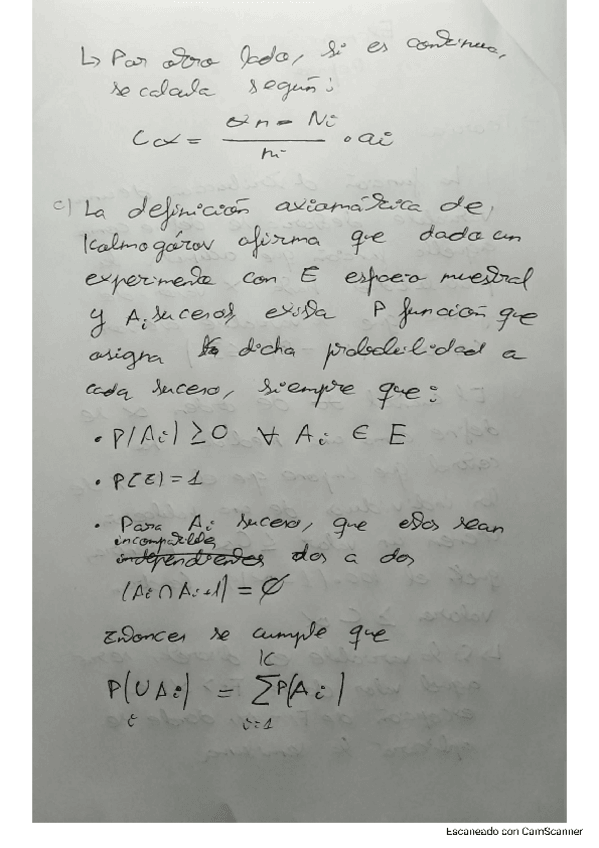 ↳ Por otro lado, si es continua,
se calcula según:
Cα = αn - Ni / ni · ai
c) La definición axiomática de
Kolmogórov afirma que dado un
experimento con E espacio muestral
y Ai sucesos, exista P función que
asigna dicha probabilidad a
cada suceso, siempre que:
• P(Ai) ≥ 0 ∀ Ai ∈ E
• P(E) = 1
• Para Ai suceso, que ellos sean
incompatibles
independientes dos a dos
(Ai ∩ Ai+1) = ∅
Entonces se cumple que
K
P(∪Ai) = ΣP(Ai)
i i=1
Escaneado con CamScanner